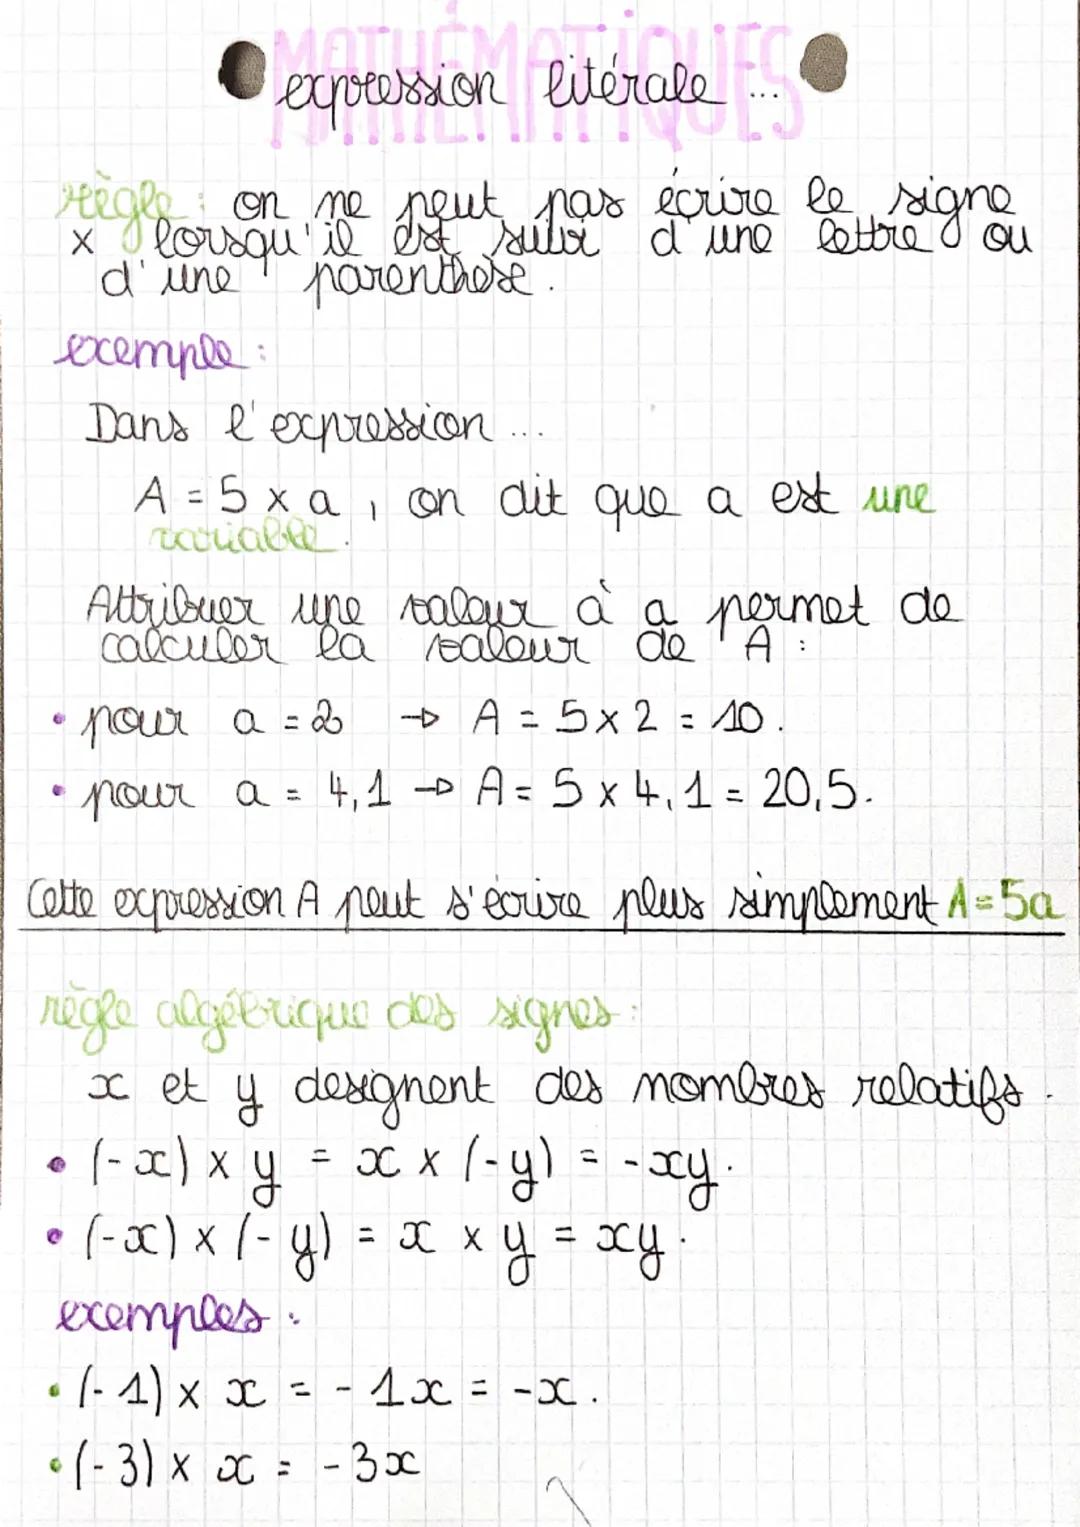 MATHÉMATIQUES
expression litérale ...
règle : on ne peut pas écrire le signe
x lorsqu'il est suivi d'une lettre ou
d'une parenthèse.
exemple :
Dans l'expression ...
A = 5 x a , on dit que a est une
variable.
Attribuer une valeur à a permet de
calculer la valeur de A :
• pour a = 2 → A = 5 x 2 = 10.
• pour a = 4,1 → A = 5 x 4,1 = 20,5.
Cette expression A peut s'écrire plus simplement A = 5a
règle algébrique des signes :
x et y designent des nombres relatifs.
• (-x) x y = x x (-y) = -xy.
• (-x) x (-y) = x x y = xy.
exemples :
• (-1) x x = -1x = -x.
• (-3) x x = -3x